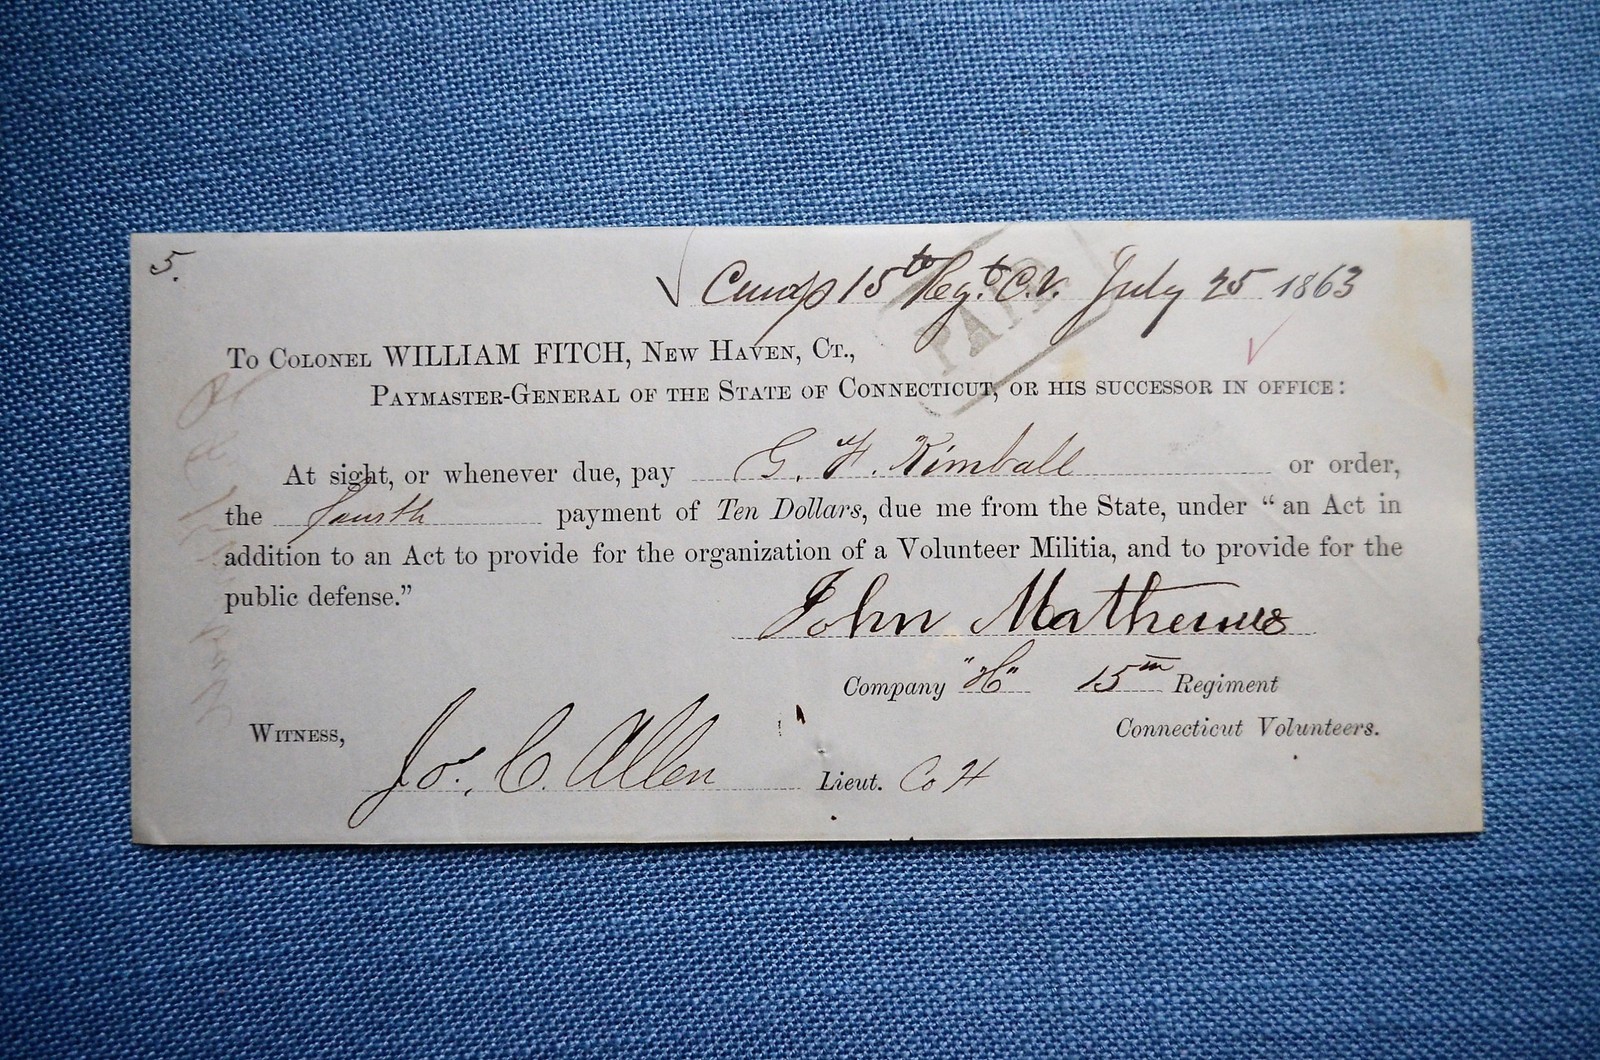 5.
Camp 15th Regt. C.V. July 25 1863
PAID
To Colonel WILLIAM FITCH, New Haven, Ct.,
Paymaster-General of the State of Connecticut, or his successor in office:
At sight, or whenever due, pay G. F. Kimball or order,
the fourth payment of Ten Dollars, due me from the State, under “an Act in
addition to an Act to provide for the organization of a Volunteer Militia, and to provide for the
public defense.”
John Mathews
Company "H" 15th Regiment
Connecticut Volunteers.
Witness,
Jo. C. Allen Lieut. Co H